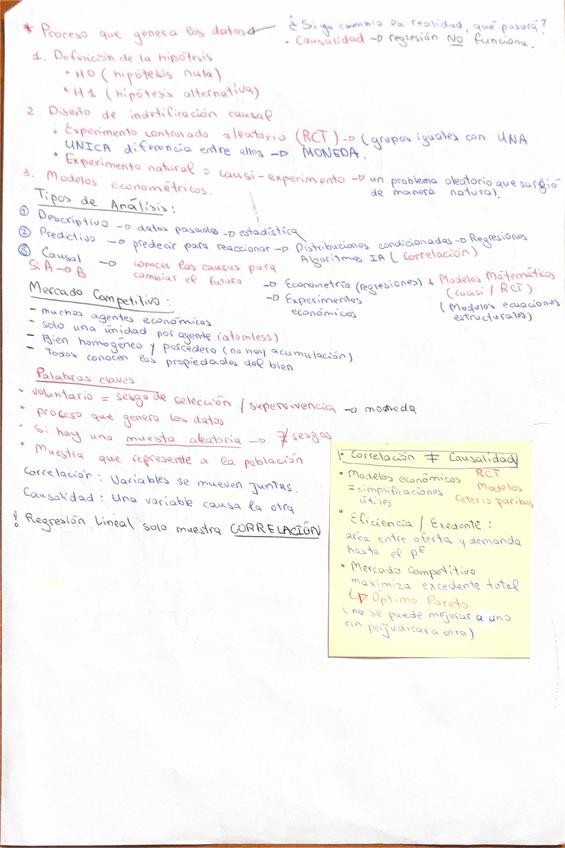 * Proceso que genera los datos
¿Si yo cambio la realidad, qué pasará?
• Causalidad → regresión NO funciona.
1. Definición de la hipótesis
• H0 (hipótesis nula)
• H1 (hipótesis alternativa)
2. Diseño de indetificación causal
• Experimento controlado aleatorio (RCT) → (grupos iguales con UNA
UNICA diferencia entre ellos → MONEDA.
• Experimento natural o causi-experimento → un problema aleatorio que surgió
de manera natural).
3. Modelos econométricos.
Tipos de Análisis:
① Descriptivo → datos pasados → estadística
② Predictivo → predecir para reaccionar → Distribuciones condicionadas → Regresiones
Algoritmos IA (Correlación)
③ Causal → conocer las causas para
Si A → B cambiar el futuro → Econometría (regresiones) + Modelos Matemáticos
→ Experimentos (cuasi / RCT)
económicos (Modelos ecuaciones
estructurales)
Mercado Competitivo:
- muchos agentes económicos
- solo una unidad por agente (atomless)
- Bien homogéneo y percedero (no hay acumulación)
- Todos conocen las propiedades del bien
Palabras claves
• voluntario = sesgo de selección / supervivencia → moneda
• proceso que genera los datos
• Si hay una muesta aleatoria → ∄ sesgos
• Muestra que represente a la población
Correlación: Variables se mueven juntas.
Causalidad: Una variable causa la otra
! Regresión Lineal solo muestra CORRELACIÓN
• Correlación ≠ Causalidad
• Modelos económicos RCT
= simplificaciones Modelos
útiles Ceteris paribus
• Eficiencia / Exedente:
area entre oferta y demanda
hasta el pE
• Mercado Competitivo
maximiza excedente total
↳ Óptimo Pareto
(no se puede mejorar a uno
sin perjudicar a otro)